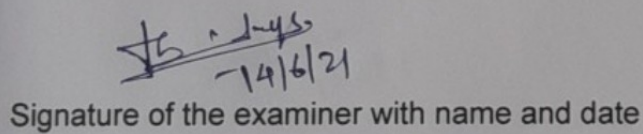 14/6/21
Signature of the examiner with name and date